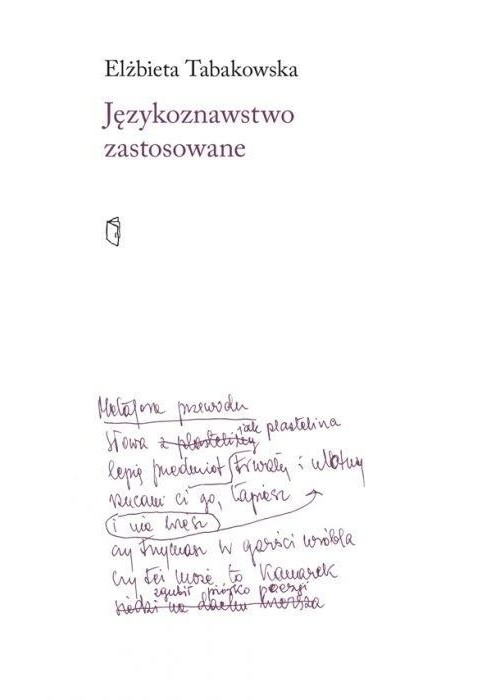 Elżbieta Tabakowska
Językoznawstwo
zastosowane
Metafora przewodu
jak plastelina
słowa z plasteliny
lepię przedmiot trwały i ulotny
rzucam ci go, łapiesz
i nie wiesz
czy trzymasz w garści wróbla
czy też może to kanarek
zgubił piórko poezji
siedzi na dachu wiersza